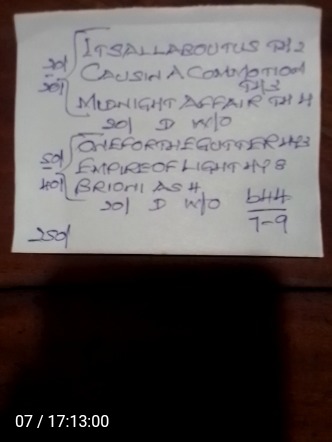 ITSALLABOUTUS TH2
20/ CAUSIN A COMMOTION
20/ TH3
MIDNIGHT AFFAIR TH4
20/ D W/O
50/ ONEFORTHEGUTTER HY3
EMPIREOFLIGHT HY8
40/ BRIONI AS4
20/ D W/O 644
7-9
250/
07 / 17:13:00